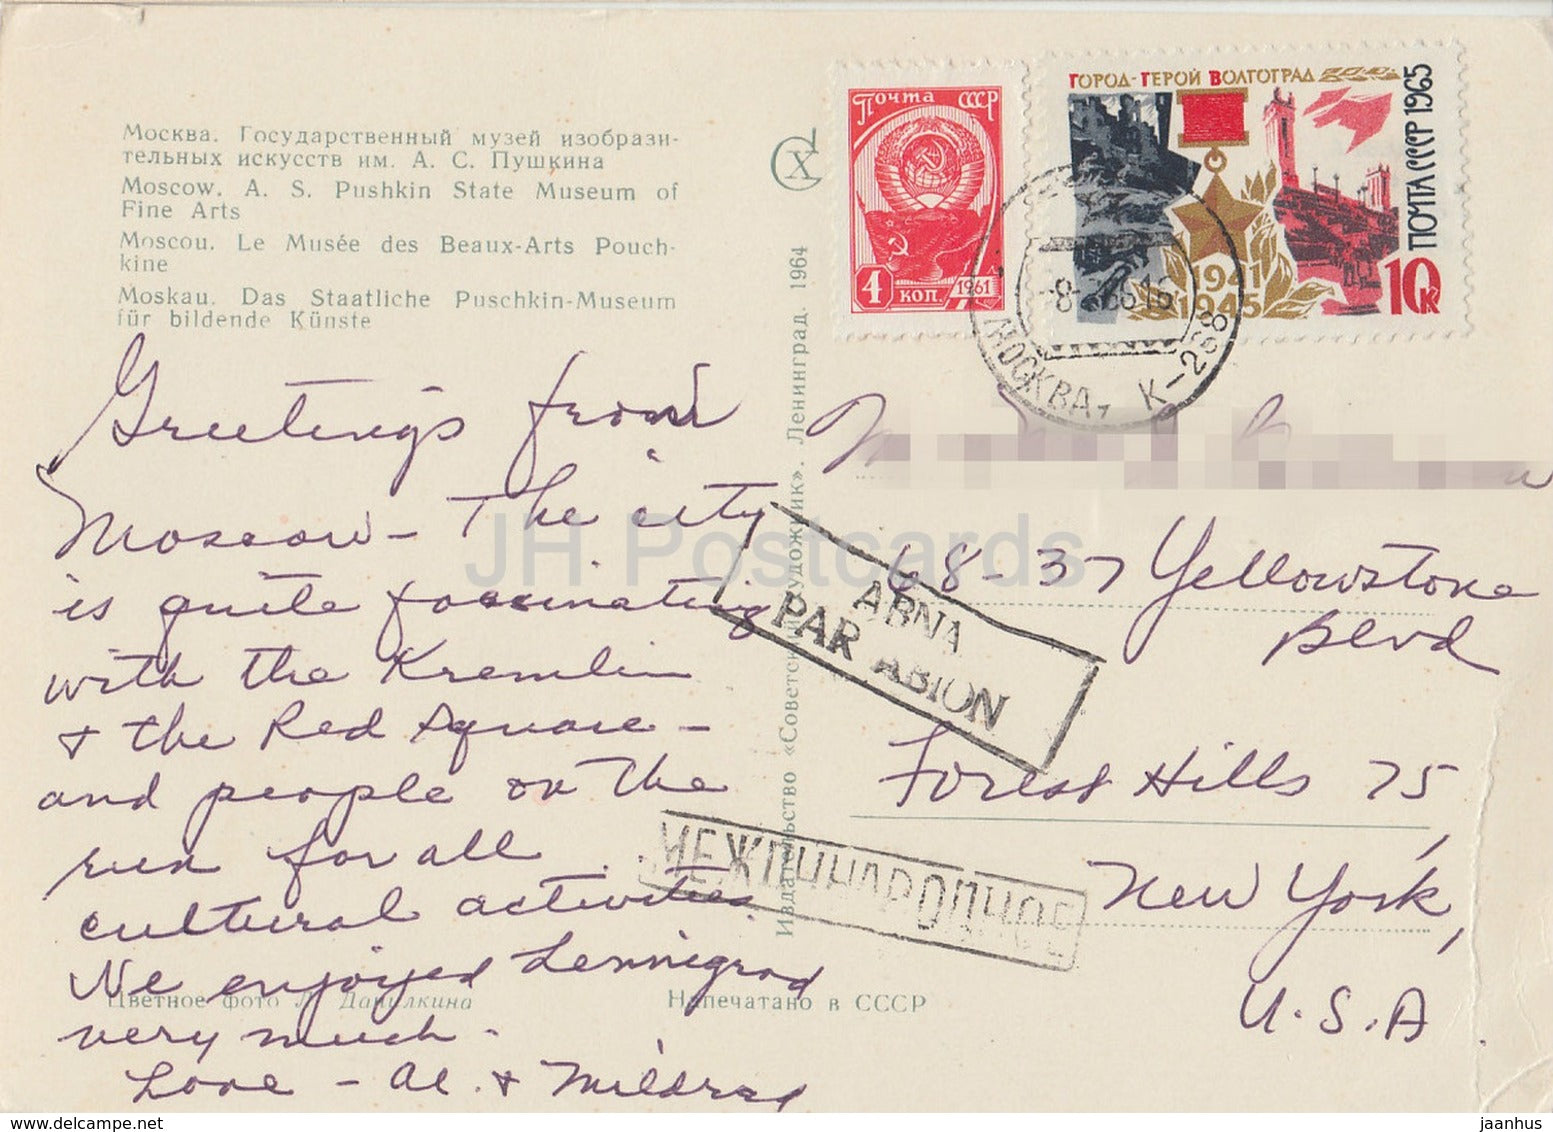 Москва. Государственный музей изобрази-
тельных искусств им. А. С. Пушкина
Moscow. A. S. Pushkin State Museum of
Fine Arts
Moscou. Le Musée des Beaux-Arts Pouch-
kine
Moskau. Das Staatliche Puschkin-Museum
für bildende Künste
Почта СССР
4 коп.
1961
ГОРОД-ГЕРОЙ ВОЛГОГРАД
ПОЧТА СССР 1965
1941
1945
10к
МОСКВА К-288
Greetings from
Moscow – The city
is quite fascinating
with the Kremlin
+ the Red Square –
and people on the
run for all
cultural activities
We enjoyed Lenningrad
very much.
Love – Al. + Mildred
68-37 Yellowstone
Blvd
Forest Hills 75,
New York,
U.S.A
АВИА
PAR AVION
МЕЖДУНАРОДНОЕ
Издательство «Советский художник». Ленинград. 1964
Цветное фото Данилкина
Напечатано в СССР
JH Postcards
delcampe.net
jaanhus